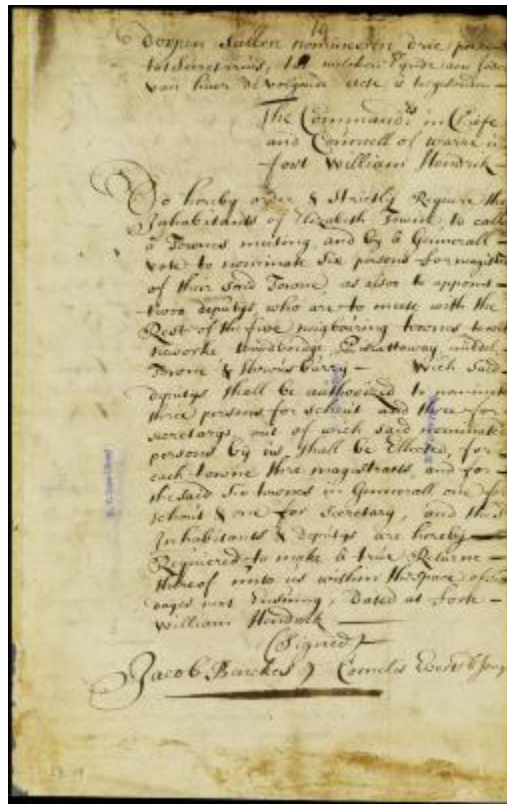 19
dorpen sullen nomineren drie persoon
tot Secretarius, tot welcken Eynde aen
van haer de volgende acte is toegesonden
The Command.rs in Chiefe
and Councell of warre in
fort William Hendrik
Do hereby order & Strictly Require the
Inhabitants of Elizabeth Towne, to calle
a Townes meeting, and by a Generall
vote to nominate Six persons for magistr
of their said Towne as also to appoint
twoo deputys, who are to meete with the
Rest of the five neigbouring townes to wit
neworke woodbridge Piscattaway, middel
Towne & Shrousburry — Wich said
deputys shall be authorized to nominate
three persons for schout and three for
secretarys out of wich said nominated
persons by us shall be Ellected, for
each towne thre magistraets, and for
the said Six townes in Generall one for
schout & one for Secretary, and the
Inhabitants & deputys are hereby
Required to make a true Returne
thereof unto us within the space of
dayes next Ensuing, Dated at fort
William Hendrik
(Signed)
Jacob Benckes, Cornelis Evertse Jong